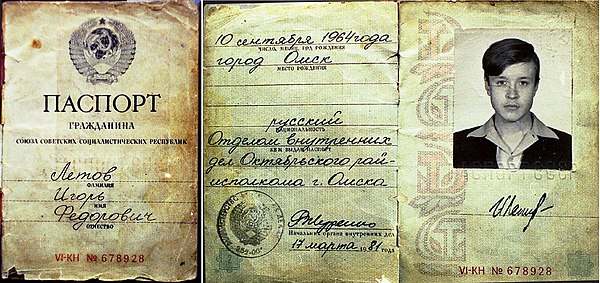 ПАСПОРТ
ГРАЖДАНИНА
СОЮЗА СОВЕТСКИХ СОЦИАЛИСТИЧЕСКИХ РЕСПУБЛИК
Летов
ФАМИЛИЯ
Игорь
ИМЯ
Федорович
ОТЧЕСТВО
VI-КН № 678928
10 сентября 1964 года
ЧИСЛО, МЕСЯЦ, ГОД РОЖДЕНИЯ
город Омск
МЕСТО РОЖДЕНИЯ
русский
НАЦИОНАЛЬНОСТЬ
Отделом внутренних
КЕМ ВЫДАН ПАСПОРТ
дел Октябрьского рай-
исполкома г. Омска
Начальник органа внутренних дел
17 марта 1981 года
СССР
VI-КН № 678928